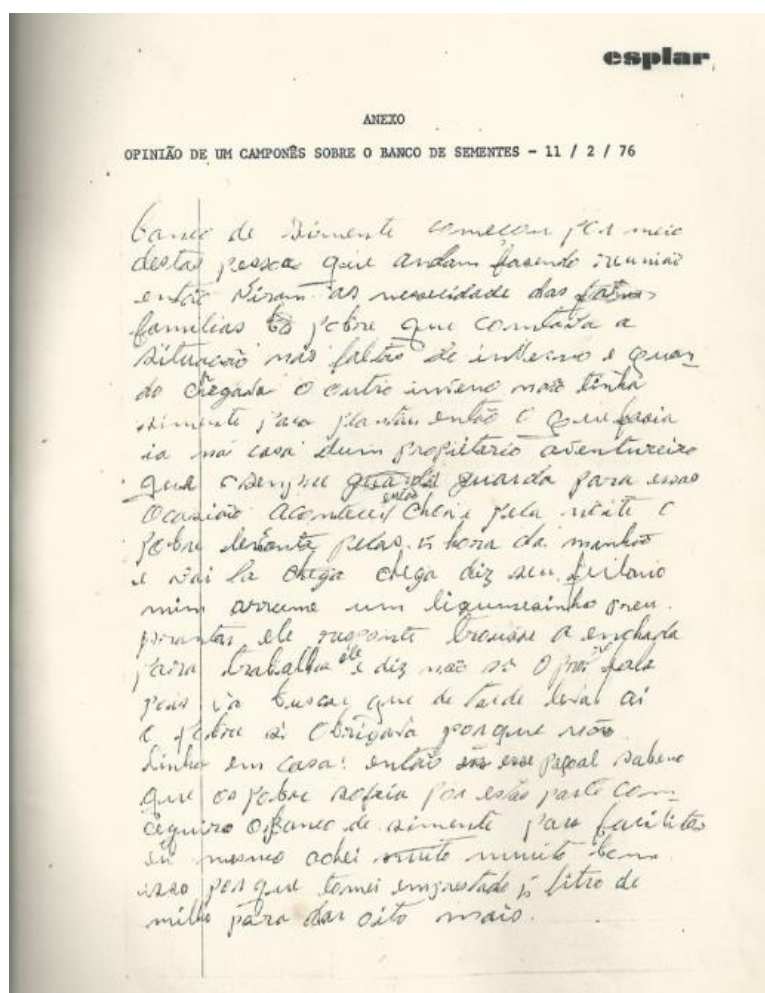 esplar
ANEXO
OPINIÃO DE UM CAMPONÊS SOBRE O BANCO DE SEMENTES - 11 / 2 / 76
banco de simente começou por meio
destas pessoa que andam fasendo reunião
então viram as necesidade das
familias pobre que contava a
situação nas faltas de inverno e quan-
do chegava o outro inveno não tinha
simente para plantar então o que fasia
ia na casa dum propietario aventureiro
que sempre guarda guarda para essas
ocasião aconteceu então chuva pela noite o
pobre levanta pelas 5 hora da manhão
e vai la chega chega diz seu fulano
mim arrume um ligumesinho
ele responte trousse a enchada
para trabalha ele diz não so o fala
pois va buscar que de tarde leva ai
o pobre si obrigava porque não
tinha em casa: então esse pesoal sabeno
que os pobre sofria por estas parte com-
ceguiro o banco de simente para facilitar
eu mesmo achei muito muuito bom
isso porque tomei emprestado 5 litro de
milho para dar oito maio.